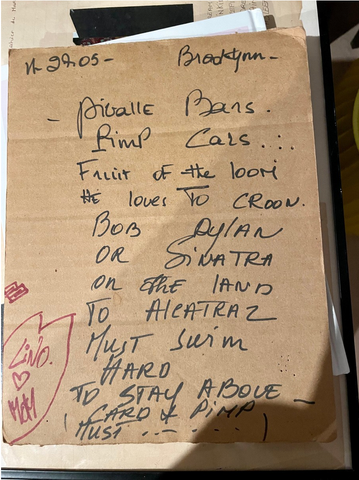 11.29.05- Brooklynn-
- Pigalle Bars.
Pimp Cars...
Fruit of the loom
He loves To CROON.
BOB DYLAN
OR SINATRA
on the land
To Alcatraz
Must swim
HARD
TO STAY ABOVE -
( CARD & PIMP
MUST ..... )
LINO.
MOM